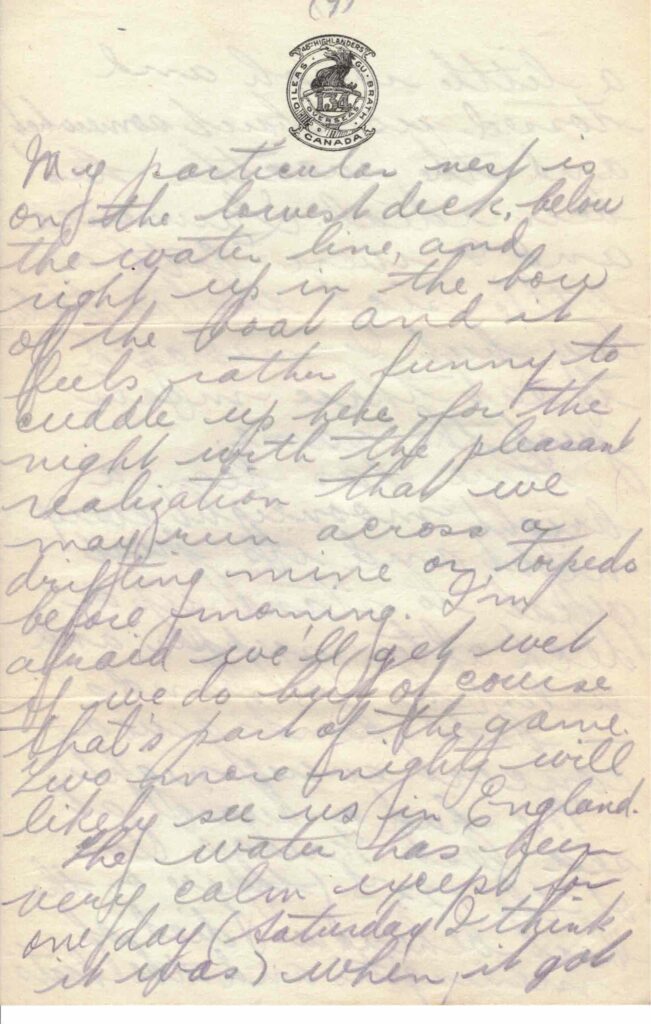 (7)
48TH HIGHLANDERS
DILEAS GU BRATH
134
OVERSEAS
CANADA
My particular nest is
on the lowest deck, below
the water line, and
right up in the bow
of the boat and it
feels rather funny to
cuddle up here for the
night with the pleasant
realization that we
may run across a
drifting mine or torpedo
before morning. I'm
afraid we'll get wet
if we do but of course
that's part of the game.
Two more nights will
likely see us in England.
The water has been
very calm except for
one day (Saturday I think
it was) when it got